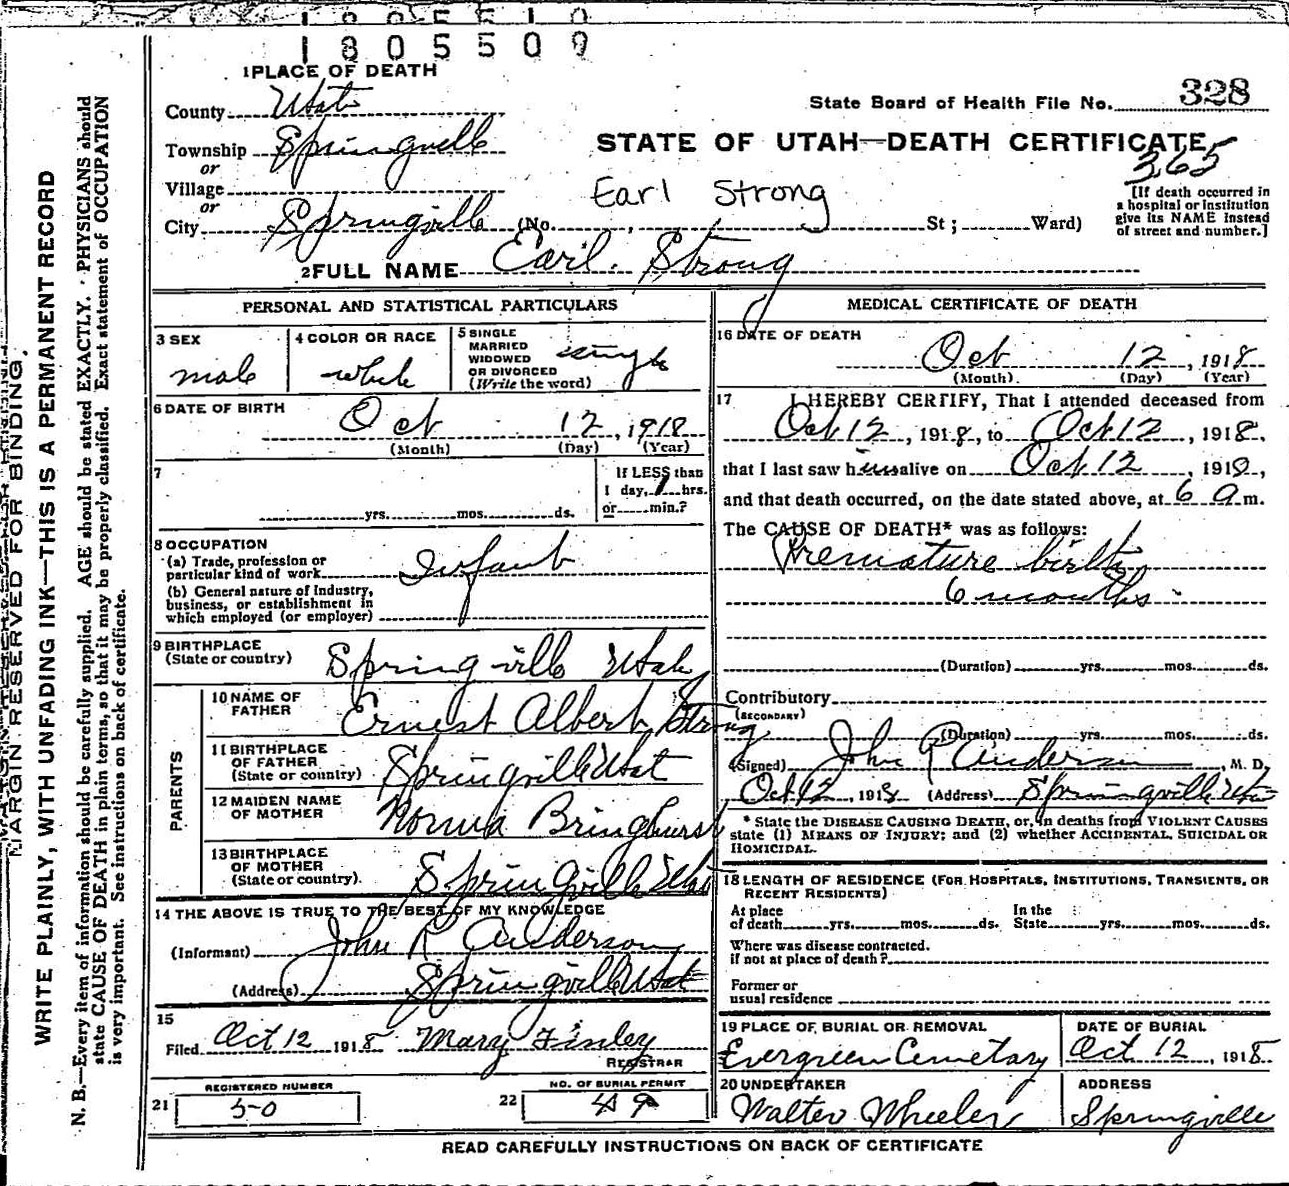 1805509
1 PLACE OF DEATH
County Utah
State Board of Health File No. 328
Township Springville
or
STATE OF UTAH—DEATH CERTIFICATE
365
Village
or
Earl Strong
[If death occurred in
a hospital or institution
give its NAME instead
of street and number.]
City Springville (No. , St; Ward)
2 FULL NAME Earl. Strong
PERSONAL AND STATISTICAL PARTICULARS
3 SEX
male
4 COLOR OR RACE
white
5 SINGLE
MARRIED
WIDOWED
OR DIVORCED
(Write the word)
single
6 DATE OF BIRTH
Oct 12, 1918
(Month) (Day) (Year)
7
yrs. mos. ds.
If LESS than
1 day, 1 hrs.
or min.?
8 OCCUPATION
(a) Trade, profession or
particular kind of work Infant
(b) General nature of Industry,
business, or establishment in
which employed (or employer)
9 BIRTHPLACE
(State or country) Springville Utah
PARENTS
10 NAME OF
FATHER Ernest Albert Strong
11 BIRTHPLACE
OF FATHER
(State or country) Springville Utah
12 MAIDEN NAME
OF MOTHER Norma Bringhurst
13 BIRTHPLACE
OF MOTHER
(State or country). Springville Utah
14 THE ABOVE IS TRUE TO THE BEST OF MY KNOWLEDGE
(Informant) John R Anderson
(Address) Springville Utah
15
Filed Oct 12 1918 Mary Finley
REGISTRAR
REGISTERED NUMBER
21 50
NO. OF BURIAL PERMIT
22 49
MEDICAL CERTIFICATE OF DEATH
16 DATE OF DEATH
Oct 12, 1918
(Month). (Day) (Year)
17 I HEREBY CERTIFY, That I attended deceased from
Oct 12, 1918, to Oct 12, 1918,
that I last saw him alive on Oct 12, 1918,
and that death occurred, on the date stated above, at 6 a m.
The CAUSE OF DEATH* was as follows:
Premature birth
6 months
(Duration) yrs. mos. ds.
Contributory
(SECONDARY)
(Duration) yrs. mos. ds.
(Signed) John R Anderson, M. D.
Oct 12, 1918 (Address) Springville Utah
* State the DISEASE CAUSING DEATH, or, in deaths from VIOLENT CAUSES
state (1) MEANS OF INJURY; and (2) whether ACCIDENTAL, SUICIDAL OR
HOMICIDAL.
18 LENGTH OF RESIDENCE (FOR HOSPITALS, INSTITUTIONS, TRANSIENTS, OR
RECENT RESIDENTS)
At place
of death yrs. mos. ds.
In the
State yrs. mos. ds.
Where was disease contracted.
if not at place of death?
Former or
usual residence
19 PLACE OF BURIAL OR REMOVAL
Evergreen Cemetary
DATE OF BURIAL
Oct 12, 1918
20 UNDERTAKER
Walter Wheeler
ADDRESS
Springville
READ CAREFULLY INSTRUCTIONS ON BACK OF CERTIFICATE
MARGIN RESERVED FOR BINDING.
WRITE PLAINLY, WITH UNFADING INK—THIS IS A PERMANENT RECORD
N. B.—Every item of information should be carefully supplied. AGE should be stated EXACTLY. PHYSICIANS should
state CAUSE OF DEATH in plain terms, so that it may be properly classified. Exact statement of OCCUPATION
is very important. See instructions on back of certificate.